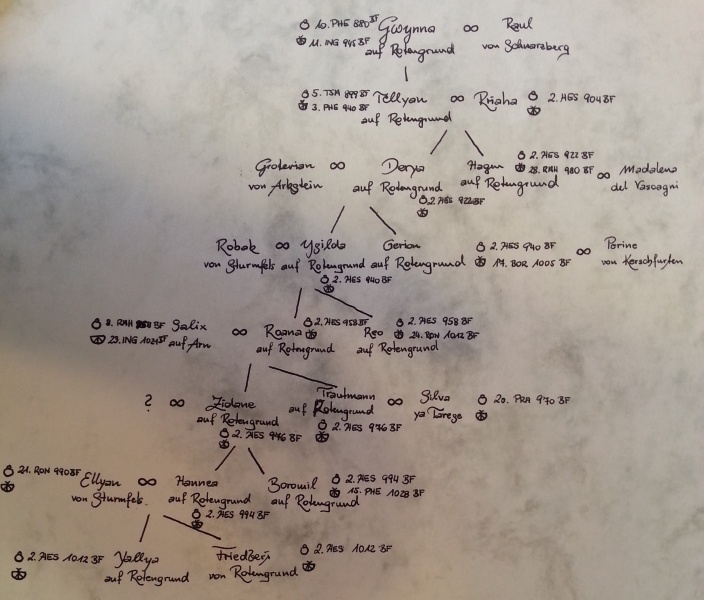 10. PHE 880 BF Gwynna ∞ Raul
11. ING 945 BF auf Rotengrund von Schwarzberg
5. TSA 899 BF Tellyan ∞ Rhaha 2. HES 904 BF
3. PHE 940 BF auf Rotengrund
Groterian ∞ Derya Hagen 2. HES 922 BF ∞ Madalena
von Arkstein auf Rotengrund auf Rotengrund 28. RAH 980 BF del Vascagni
2. HES 922 BF
Robak ∞ Ysilda Gerion 2. HES 940 BF ∞ Perine
von Sturmfels auf Rotengrund auf Rotengrund 17. BOR 1005 BF von Kerschfurten
2. HES 940 BF
8. RAH BF Salix ∞ Roana 2. HES 958 BF Reo 2. HES 958 BF
23. ING 1021 BF auf Arn auf Rotengrund auf Rotengrund 24. RON 1012 BF
? ∞ Zidane Trautmann ∞ Silva 20. PRA 970 BF
auf Rotengrund auf Rotengrund ya Tarege
2. HES 976 BF 2. HES 976 BF
21. RON 990 BF Ellyan ∞ Hannea Boromil 2. HES 994 BF
von Sturmfels auf Rotengrund auf Rotengrund 15. PHE 1028 BF
2. HES 994 BF
2. HES 1012 BF Yallya Friedbert 2. HES 1012 BF
auf Rotengrund von Rotengrund